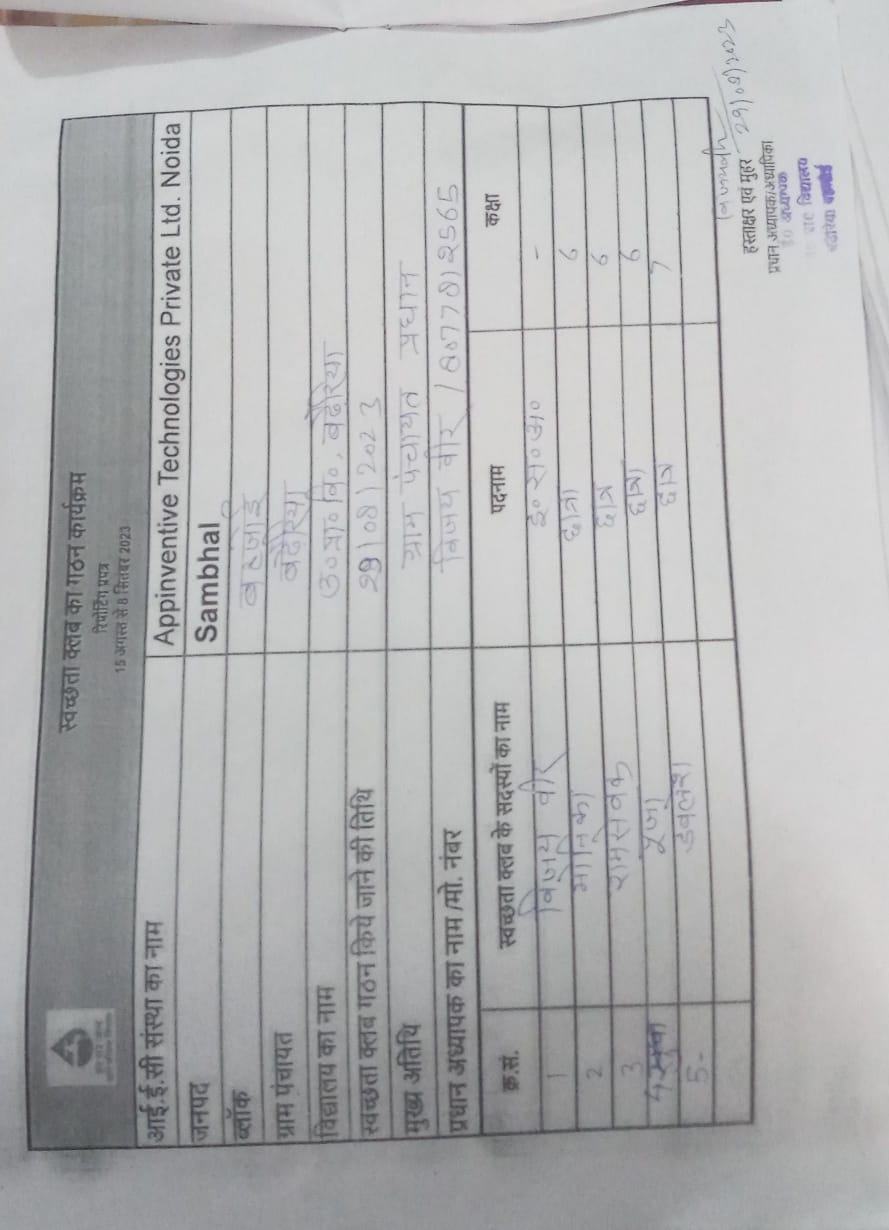 स्वच्छता क्लब का गठन कार्यक्रम
रिपोर्टिंग प्रपत्र
15 अगस्त से 8 सितंबर 2023
आई.ई.सी संस्था का नाम Appinventive Technologies Private Ltd. Noida
जनपद Sambhal
ब्लॉक
ग्राम पंचायत बढेरिया
विद्यालय का नाम उ०प्रा० वि०, बढेरिया
स्वच्छता क्लब गठन किये जाने की तिथि 29/08/2023
मुख्य अतिथि ग्राम पंचायत प्रधान
प्रधान अध्यापक का नाम /मो. नंबर विजय वीर / 8077812565
क्र.सं. स्वच्छता क्लब के सदस्यों का नाम पदनाम कक्षा
1 विजय वीर इ० स० अ० -
2 मोनिका छात्रा 6
3 रामसेवक छात्र 6
4 छात्रा 6
5- छात्र 7
हस्ताक्षर एवं मुहर
प्रधान अध्यापक/अध्यापिका